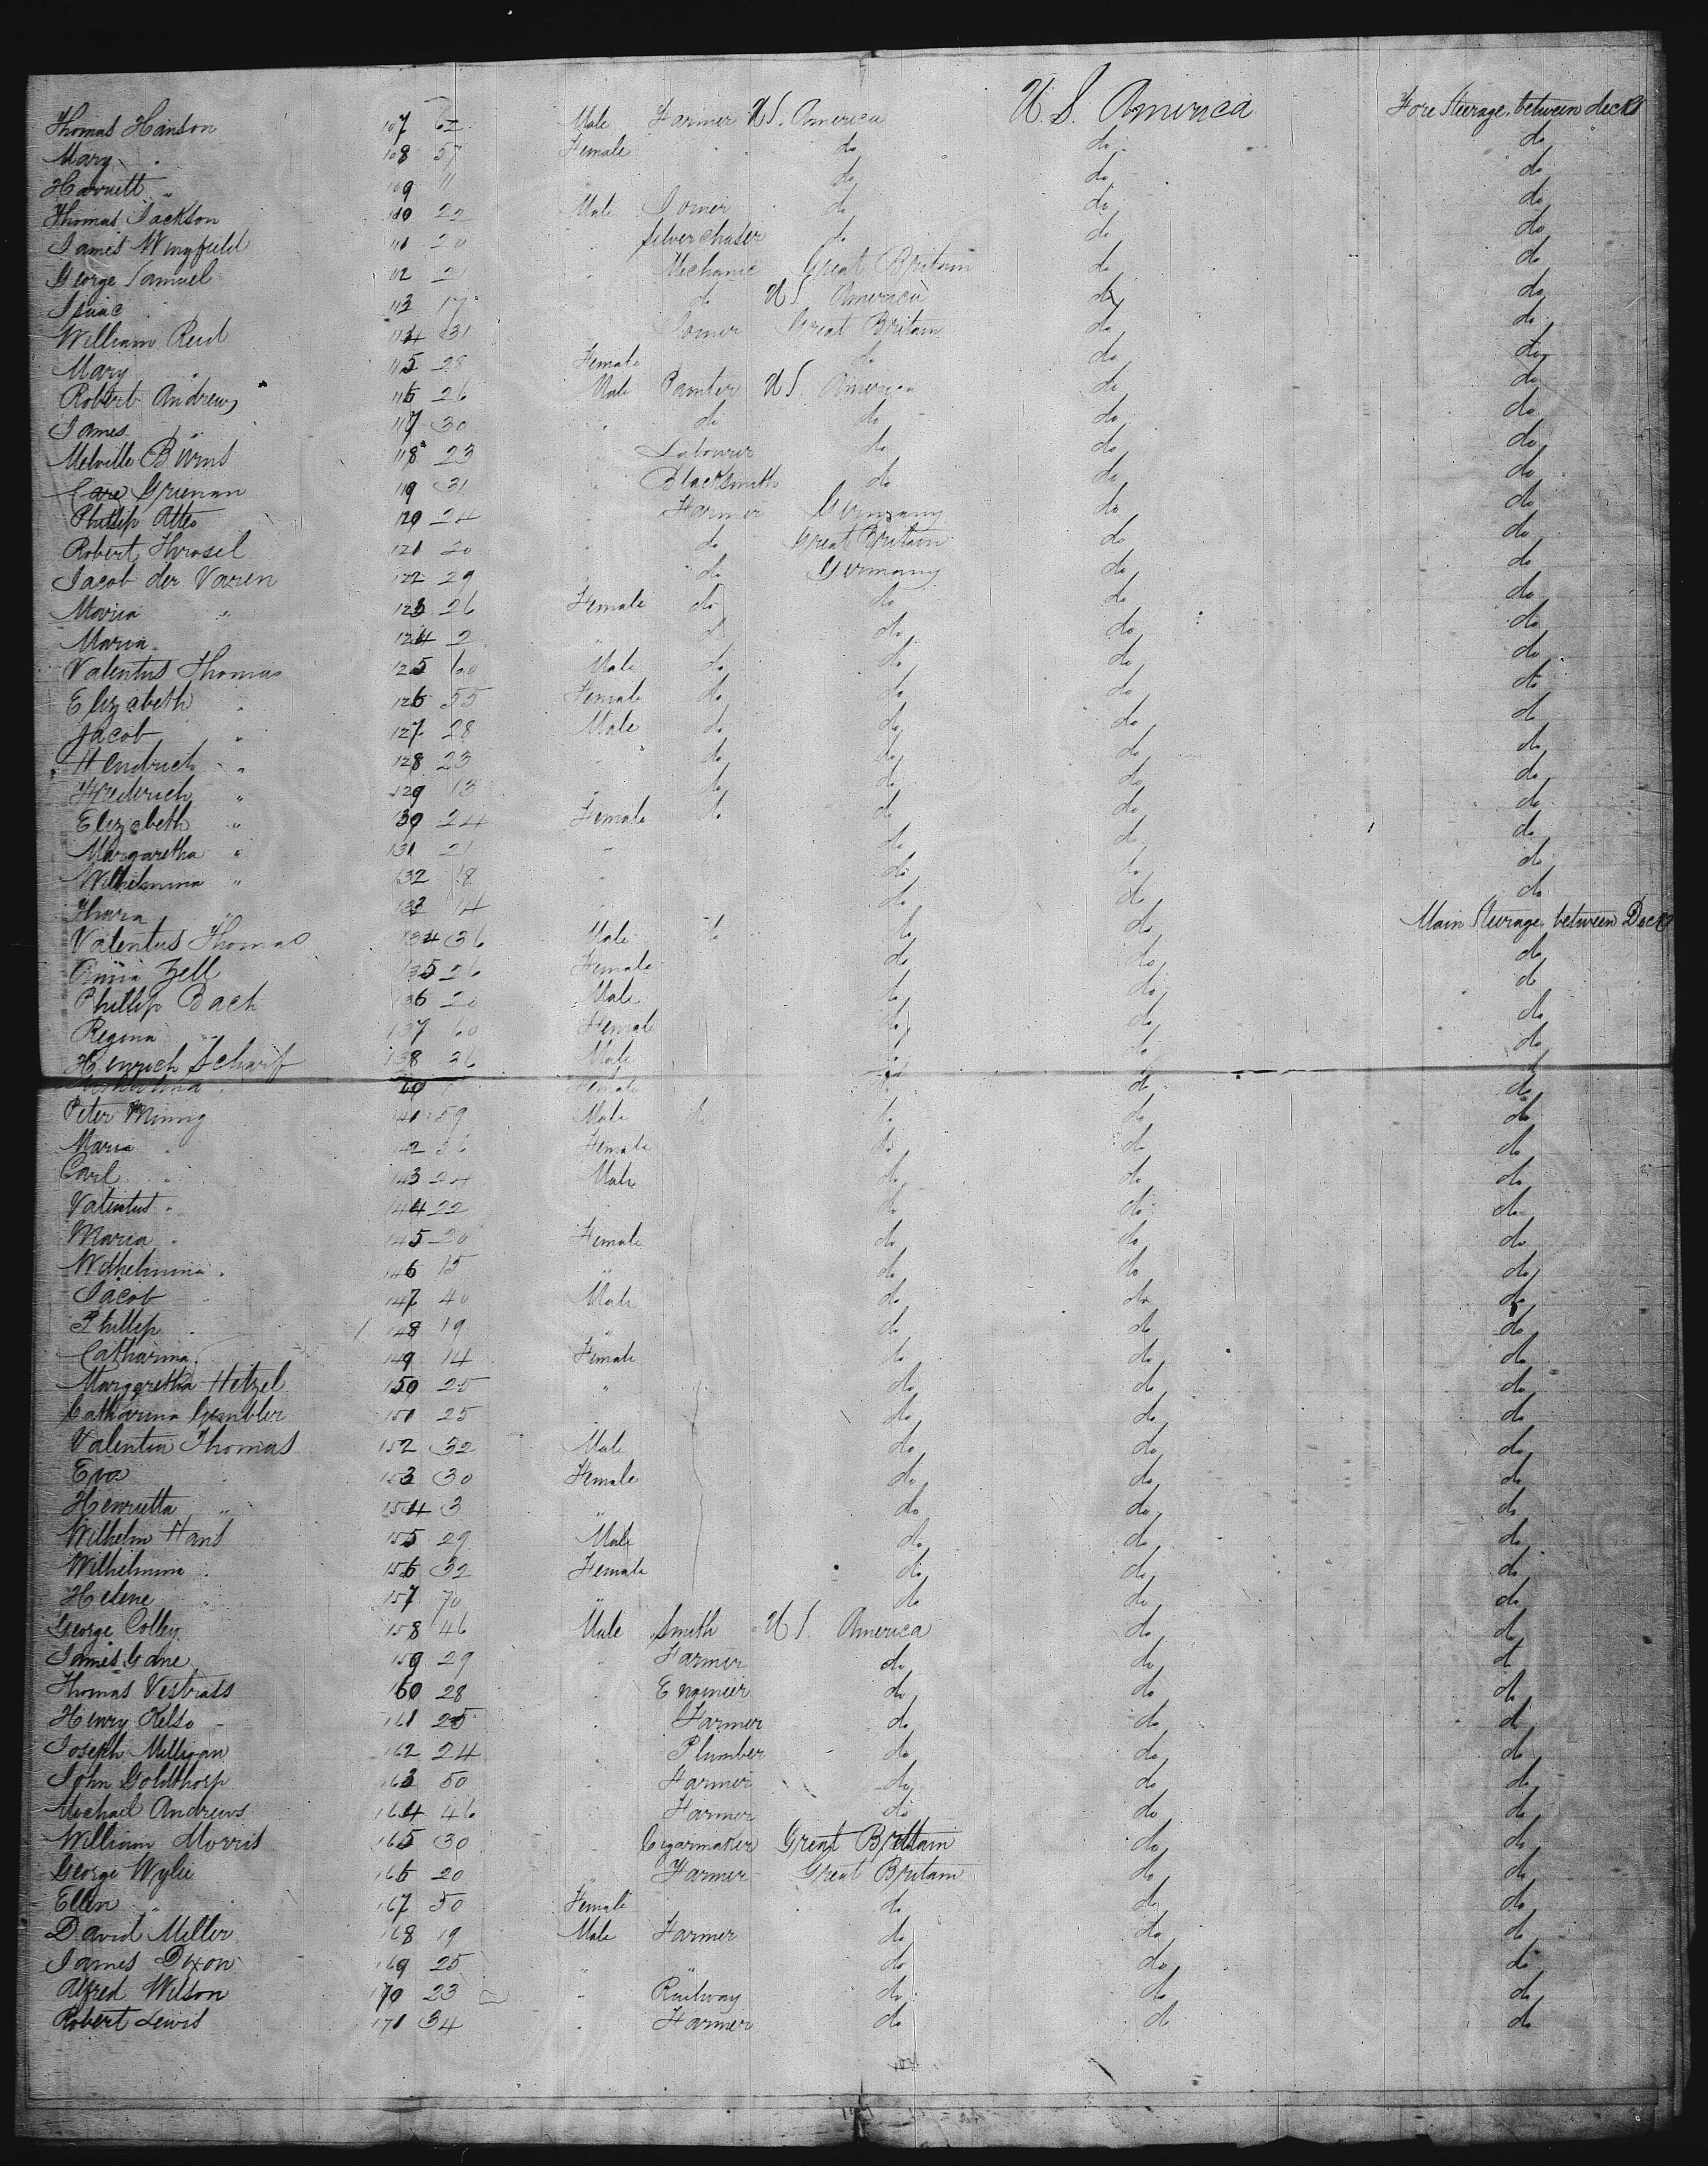 Thomas Hanson 107 62 Male Farmer U.S. America U.S. America Fore Steerage between decks
Mary " 108 57 Female " do do do
Harriett " 109 11 " do do do
Thomas Jackson 110 22 Male Joiner do do do
James Wingfield 111 20 " Silver chaser do do do
George Samuel 112 21 " Mechanic Great Britain do do
Isaac " 113 17 " do U S America do do
William Reid 114 31 Joiner Great Britain do do
Mary " 115 28 Female do do do
Robert Andrews 116 26 Male Painter U S. America do do
James " 117 30 " do do do do
Melville Burns 118 23 " Labourer do do do
Grienan 119 31 " Blacksmith do do do
Phillip Attes 120 24 " Farmer Germany do do
Robert 121 20 " do Great Britain do do
Jacob der Varen 122 29 " do Germany do do
Maria " 123 26 Female do do do do
Maria 124 2 " do do do do
Valentus Thomas 125 60 Male do do do do
Elizabeth " 126 55 Female do do do do
Jacob " 127 28 Male do do do do
Hendrich " 128 23 " do do do do
Frederich " 129 13 " do do do do
Elizabeth " 130 24 Female do do do do
Margaretha " 131 21 " do do do
Wilhelmina " 132 18 " do do do
Thora " 133 14 " do do do
Valentus Thomas 134 36 Male do do do Main Steerage between Decks
Anna Zell 135 26 Female do do do
Phillip Bach 136 20 Male do do do
Regina " 137 60 Female do do do
Henrich Scharf 138 36 Male do do do
140 Female do do do
Peter Minnig 141 59 Male do do do do
Maria " 142 56 Female do do do
Carl " 143 24 Male do do do
Valentus " 144 22 do do do
Maria " 145 20 Female do do do
Wilhelmina " 146 15 " do do do
Jacob " 147 40 Male do do do
Phillip " 148 19 " do do do
Catharina 149 14 Female do do do
Margaretha Hetzel 150 25 " do do do
Catharina 151 25 do do do
Valentin Thomas 152 32 Male do do do
Eva " 153 30 Female do do do
Henrietta " 154 3 " do do do
Wilhelm Hans 155 29 Male do do do
Wilhelmina " 156 32 Female do do do
Helene " 157 70 " do do do
George Colley 158 46 Male Smith U S. America do do
James Gane 159 29 " Farmer do do do
Thomas Vestrass 160 28 " Engineer do do do
Henry Kelso 161 25 " Farmer do do do
Joseph Milligan 162 24 " Plumber do do do
John Goldthorp 163 50 " Farmer do do do
Michael Andrews 164 46 " Farmer do do do
William Morris 165 30 " Cigarmaker Great Brittain do do
George Wylie 166 20 " Farmer Great Britain do do
Ellen " 167 50 Female do do do
David Miller 168 19 Male Farmer do do do
James Dixon 169 25 " " do do do
Alfred Wilson 170 23 " Railway do do do
Robert Lewis 171 34 " Farmer do do do